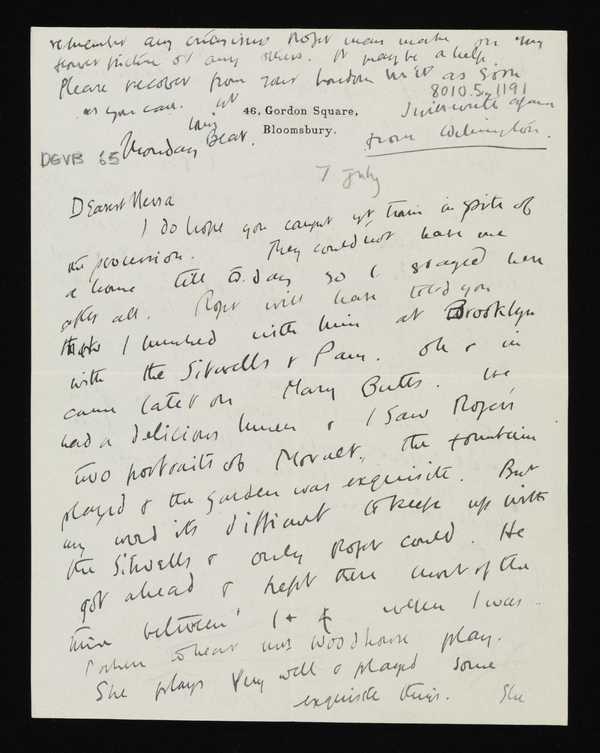 remember any criticisms Roger may make on my
flower picture or any others. It may be a help.
Please recover from your London as soon
as you can.
8010.5.1191
I will write again
from Wilmington.
46, Gordon Square,
Bloomsbury.
Monday
Bear.
DGVB 65
7 July
Dearest Nessa
I do hope you caught yr train in spite of
the procession. They couldn't have me
at home till to.day so I stayed here
after all. Roger will have told you
that I lunched with him at Brooklyn
with the Sitwells & Pam. Oh & in
came later on Mary Butts. We
had a delicious lunch & I saw Roger's
two portraits of the fountain
played & the garden was exquisite. But
my word its difficult to keep up with
the Sitwells & only Roger could. He
got ahead & kept there most of the
time between 1 & 4 when I was
taken to hear Mrs Woodhouse play.
She plays very well & played some
exquisite things. She